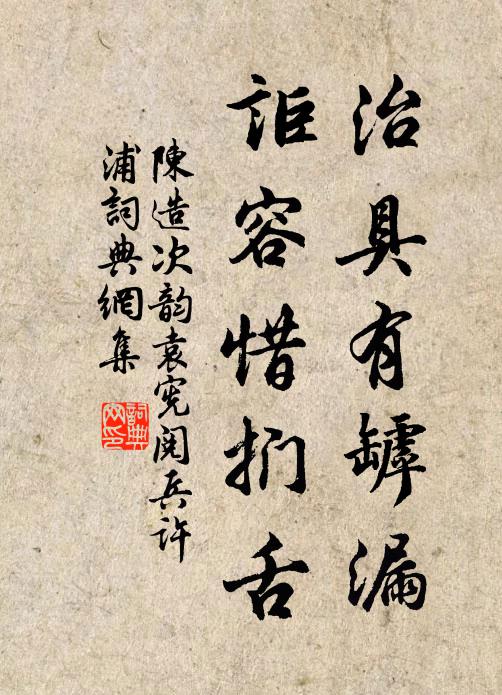 治具有罅漏
詎容惜捫舌
陳造次韵袁宪阅兵许
浦詞典網集
詞典网印